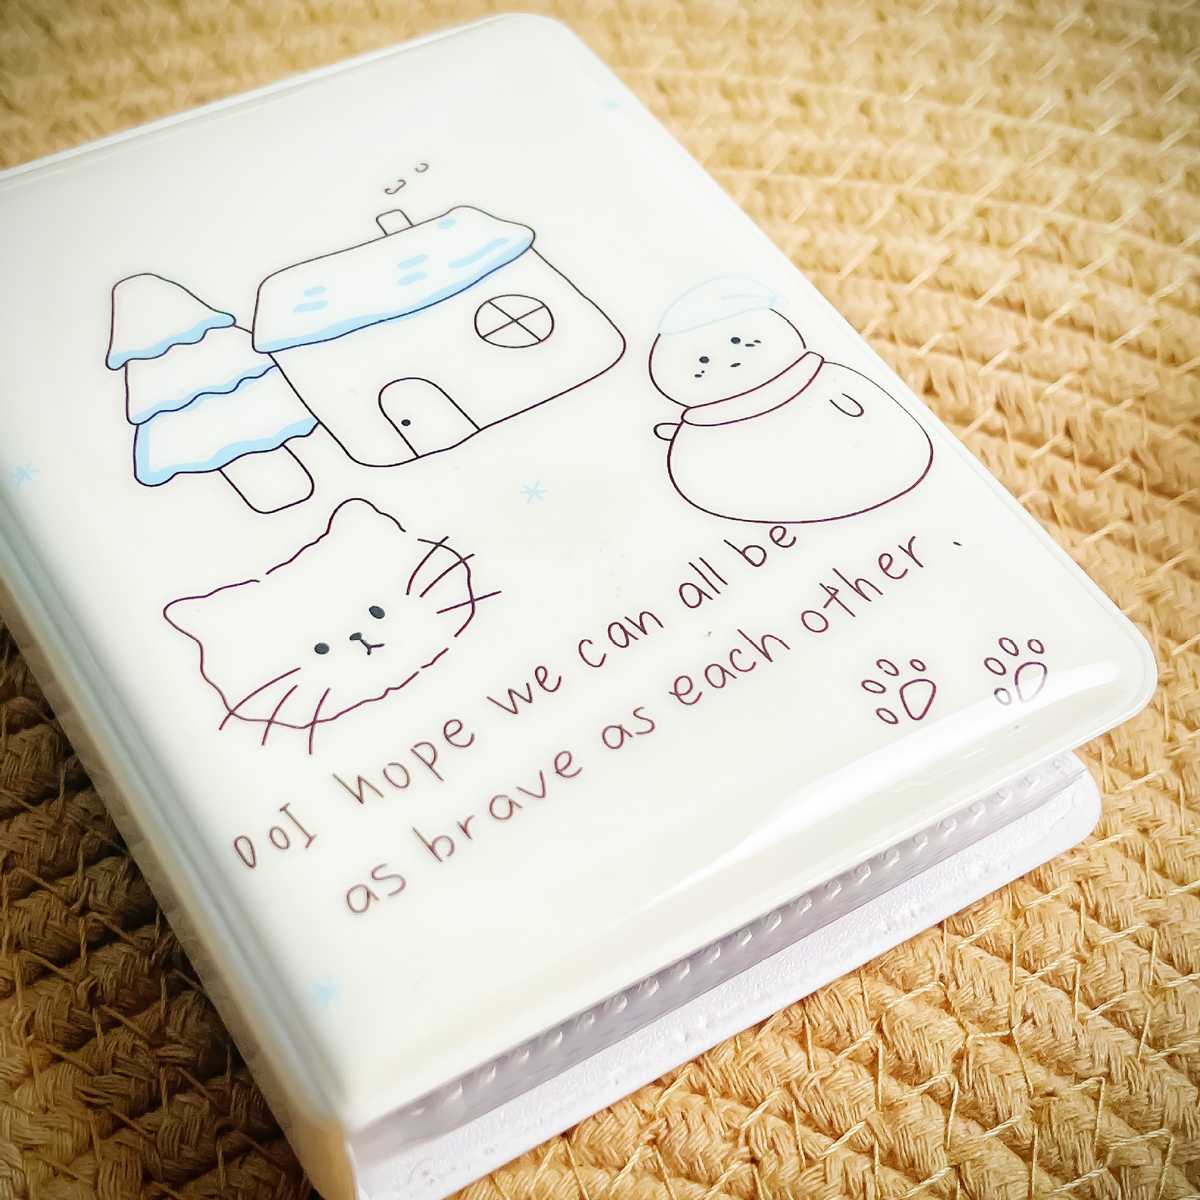 OoI hope we can all be
as brave as each other.